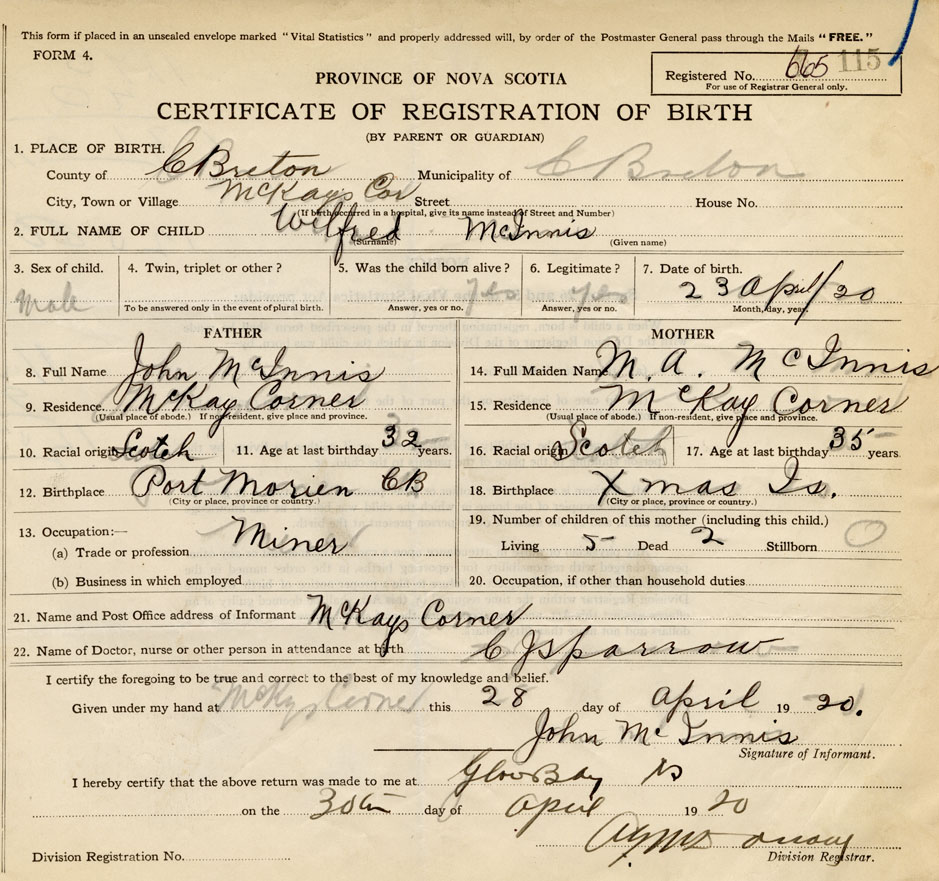 This form if placed in an unsealed envelope marked "Vital Statistics" and properly addressed will, by order of the Postmaster General pass through the Mails "FREE."
FORM 4.
Registered No. 665 115
For use of Registrar General only.
PROVINCE OF NOVA SCOTIA
CERTIFICATE OF REGISTRATION OF BIRTH
(BY PARENT OR GUARDIAN)
1. PLACE OF BIRTH.
County of C Breton Municipality of C Breton
City, Town or Village McKays Cor Street House No.
(If birth occurred in a hospital, give its name instead of Street and Number)
2. FULL NAME OF CHILD Wilfred McInnis
(Surname) (Given name)
3. Sex of child. 4. Twin, triplet or other? 5. Was the child born alive? 6. Legitimate? 7. Date of birth.
Male yes yes 23 April/20
To be answered only in the event of plural birth. Answer, yes or no. Answer, yes or no. Month, day, year.
FATHER MOTHER
8. Full Name John McInnis 14. Full Maiden Name M. A. McInnis
9. Residence McKay Corner 15. Residence McKay Corner
(Usual place of abode.) If non-resident, give place and province. (Usual place of abode.) If non-resident, give place and province.
10. Racial origin Scotch 11. Age at last birthday 32 years. 16. Racial origin Scotch 17. Age at last birthday 35 years
12. Birthplace Port Morien CB 18. Birthplace Xmas Is.
(City or place, province or country.) (City or place, province or country.)
13. Occupation:— 19. Number of children of this mother (including this child.)
(a) Trade or profession Miner Living 5 Dead 2 Stillborn 0
(b) Business in which employed 20. Occupation, if other than household duties
21. Name and Post Office address of Informant McKays Corner
22. Name of Doctor, nurse or other person in attendance at birth C J Sparrow
I certify the foregoing to be true and correct to the best of my knowledge and belief.
Given under my hand at McKys Corner this 28 day of April 19 20.
John McInnis
Signature of Informant.
I hereby certify that the above return was made to me at Glace Bay NS
on the 30th day of April 19 20
Division Registration No. Division Registrar.